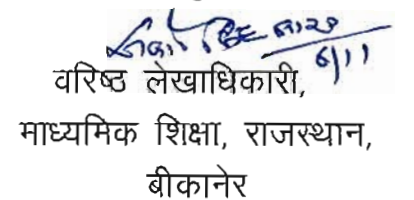 6/11
वरिष्ठ लेखाधिकारी,
माध्यमिक शिक्षा, राजस्थान,
बीकानेर